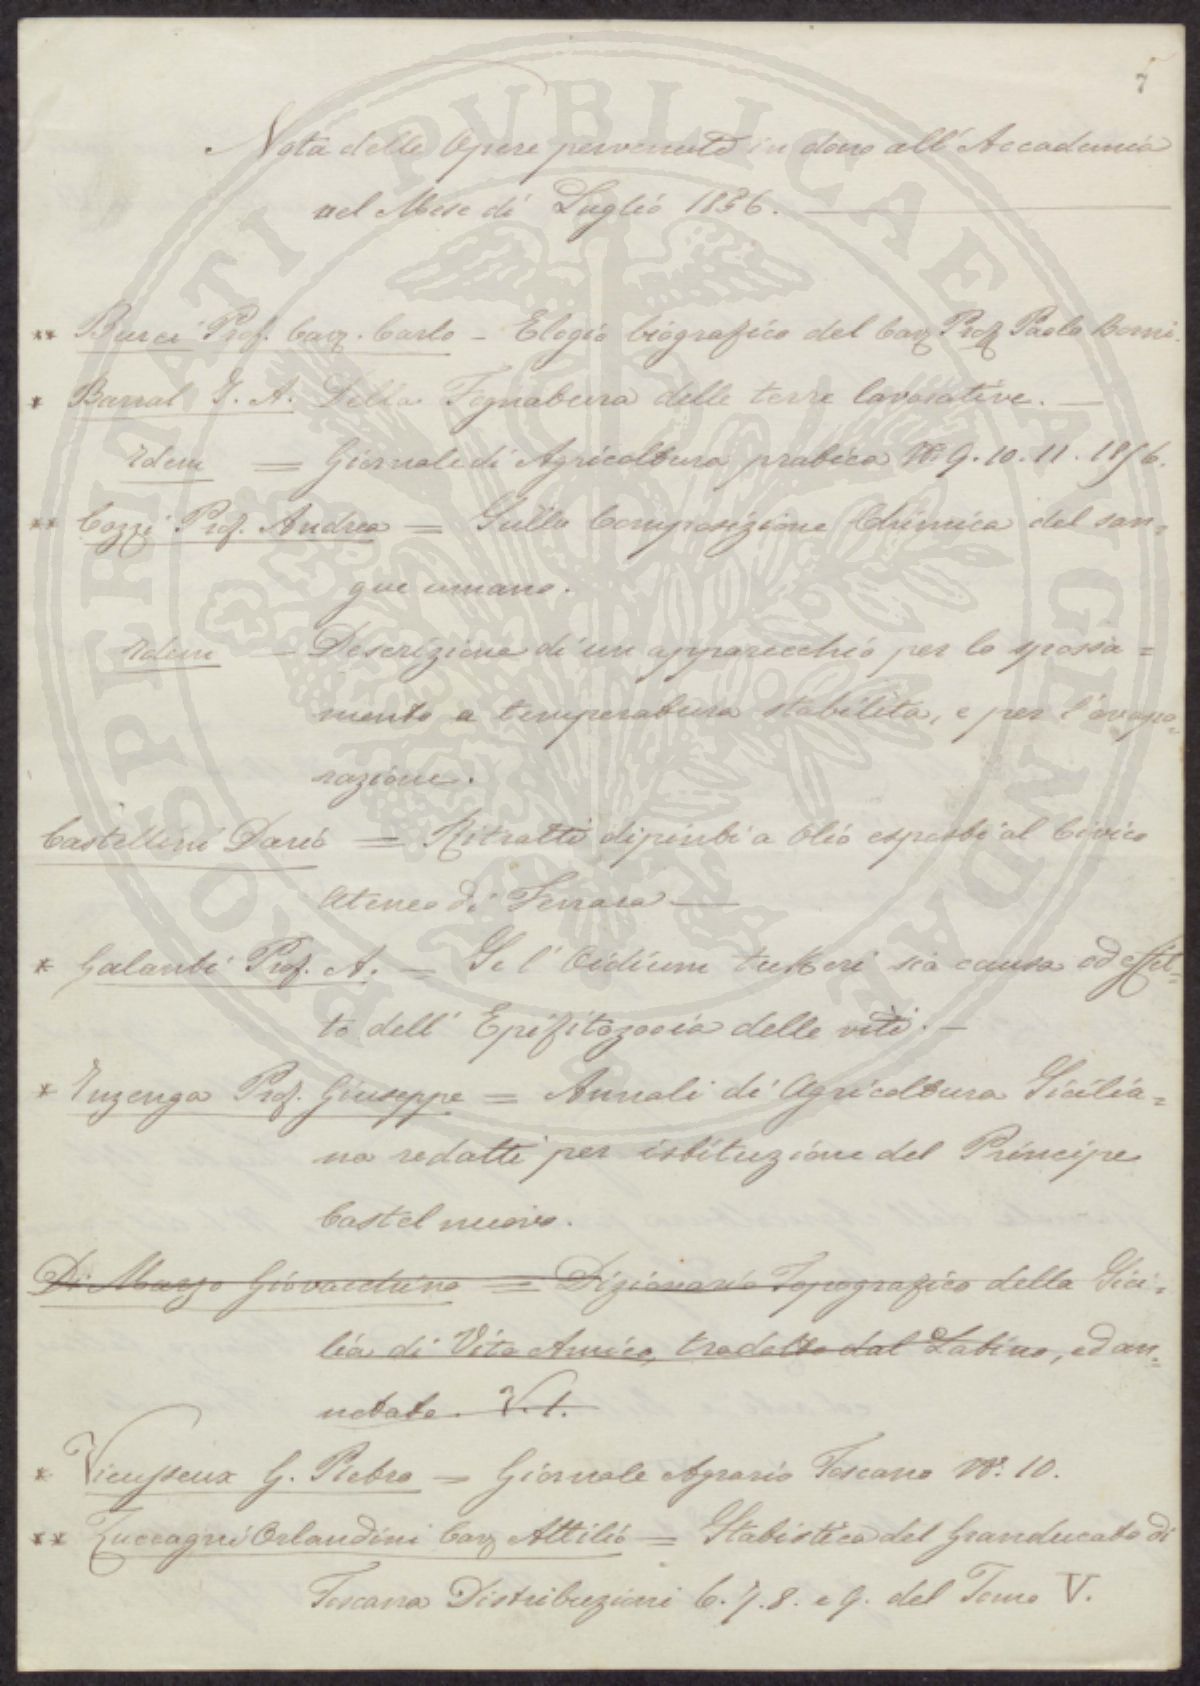 7
Nota delle Opere pervenute in dono all' Accademia
nel Mese di Luglio 1856.
** Burci Prof. Cav. Carlo - Elogio biografico del Cav Prof Paolo
* Barral J. A. Della Fognatura delle terre lavorative. —
Idem = Giornale di Agricoltura pratica No. 9. 10. 11. 1856.
** Cozzi Prof. Andrea = Sulla Composizione Chimica del san=
gue umano.
Idem - Descrizione di un apparecchio per lo spossa=
mento a temperatura stabilita, e per l'evapo=
razione.
Castellini Dario = Ritratti dipinti a Olio esposti al Civico
Ateneo di Ferrara —
* Galanti Prof. A. = Se l' Oidium tukkeri sia causa od effet=
to dell' Epifitozooia delle viti. —
* Inzenga Prof. Giuseppe = Annali di Agricoltura Sicilia=
na redatti per istituzione del Principe
Castelnuovo.
Di Marzo Giovacchino = Dizionario Topografico della Sici=
lia di Vito Amico, tradotto dal Latino, ed an=
notato. V. 1.
* Vieusseux G. Pietro = Giornale Agrario Toscano No. 10.
** Zuccagni Orlandini Cav Attilio = Statistica del Granducato di
Toscana Distribuzioni 6. 7. 8. e 9. del Tomo V.
PROSPERITATI PUBLICAE AUGENDAE